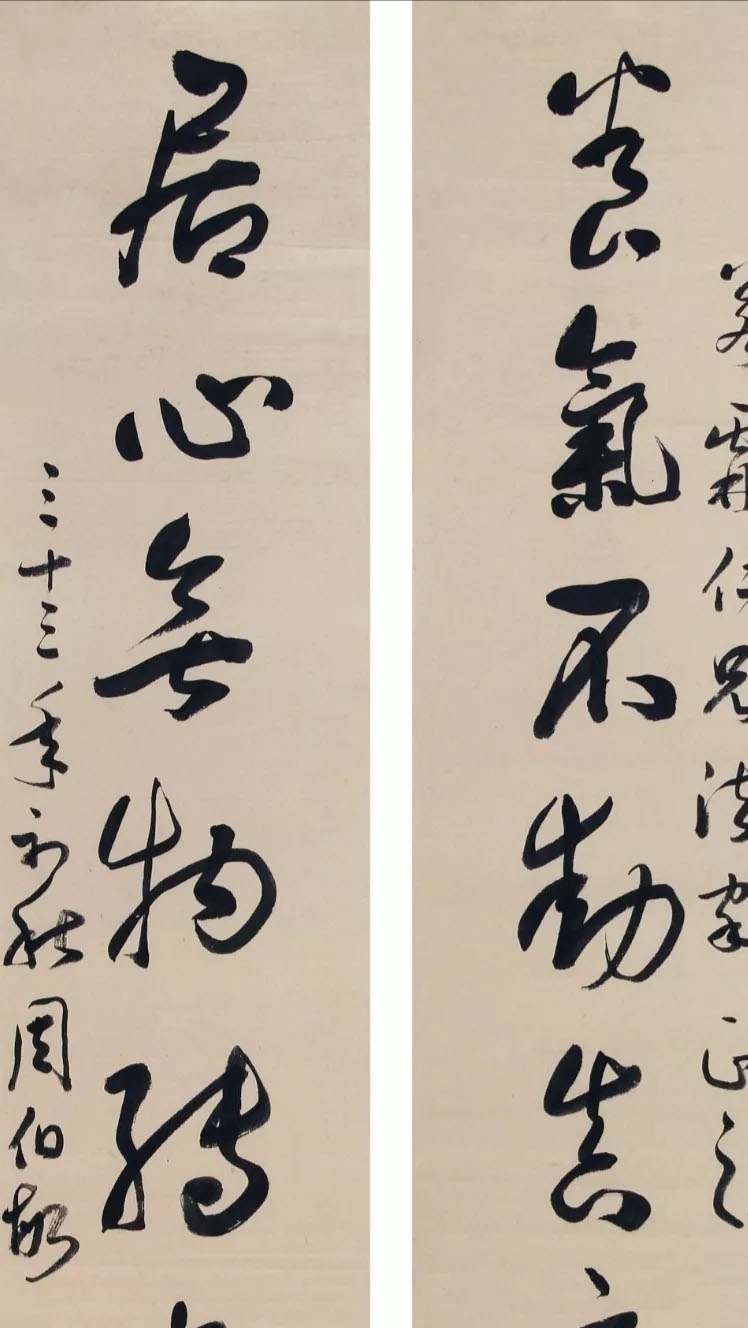 霖仁兄法家正之
養氣不動真
居心無物轉
三十三年初秋周伯敏